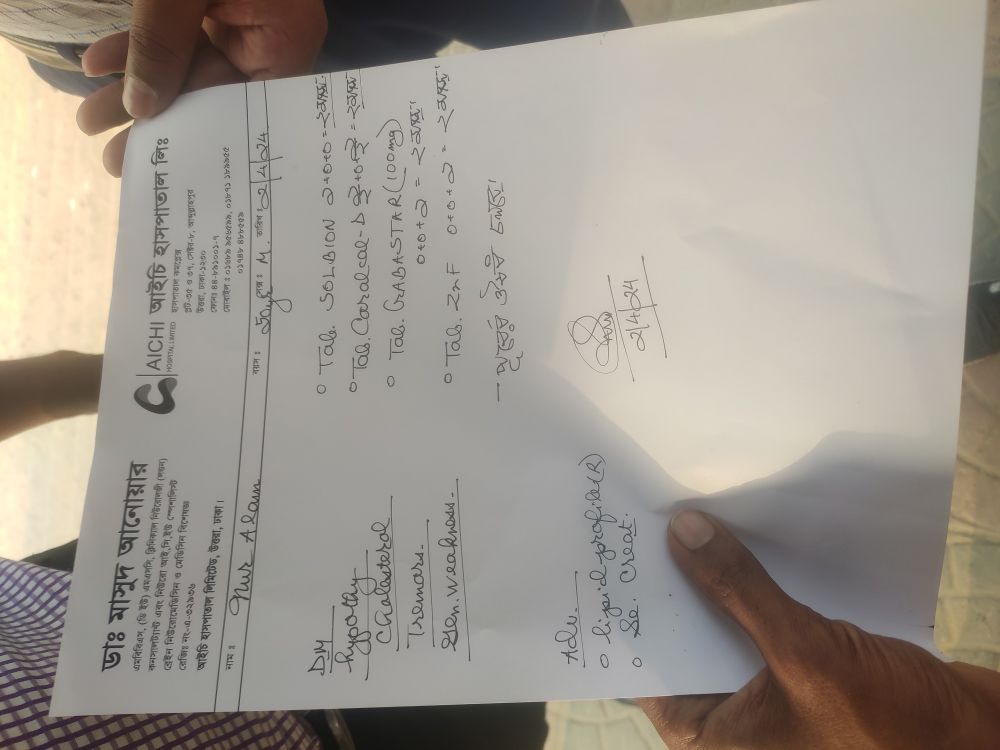 ডাঃ মাসুদ আনোয়ার
এমবিবিএস, (ডি ইউ) এমএসসি, ক্লিনিক্যাল নিউরোলজী (লন্ডন)
কনসালট্যান্ট এবং নিউরো আই,সি,ইউ স্পেশালিস্ট
ব্রেইন নিউরোমেডিসিন ও মেডিসিন বিশেষজ্ঞ
রেজিঃ নং-এ-৩২৯৩৬
আইচি হাসপাতাল লিমিটেড, উত্তরা, ঢাকা।
AICHI
HOSPITAL LIMITED
আইচি হাসপাতাল লিঃ
হাসপাতাল কমপ্লেক্স
প্লট-৩৫ ও ৩৭, সেক্টর-৮, আব্দুল্লাহপুর
উত্তরা, ঢাকা-১২৩০
ফোনঃ ৪৪-৮৯১০০১-৭
মোবাইল : ০১৬৮৯ ৯৫৬৫৯৯, ০১৮৭১ ১৮৯৯৫৫
০১৭৪৮ ৪৮৮৫৫৯
নাম : Nur Alam বয়স : 50y সেক্স : M. তারিখ : 2/4/24
DM
hypothy
Cholesterol
Tremors.
Gen. weakness.
Tab. SOLBION ২+০+০ = ২
Tab. Coralcal-D = ২
Tab. GABASTAR (100mg)
০+০+২ = ২
Tab. ZnF ০+০+২ = ২
- পূর্বের ঔষধ চলবে।
Adv.
lipid profile (R)
Se. Creat.
2/4/24